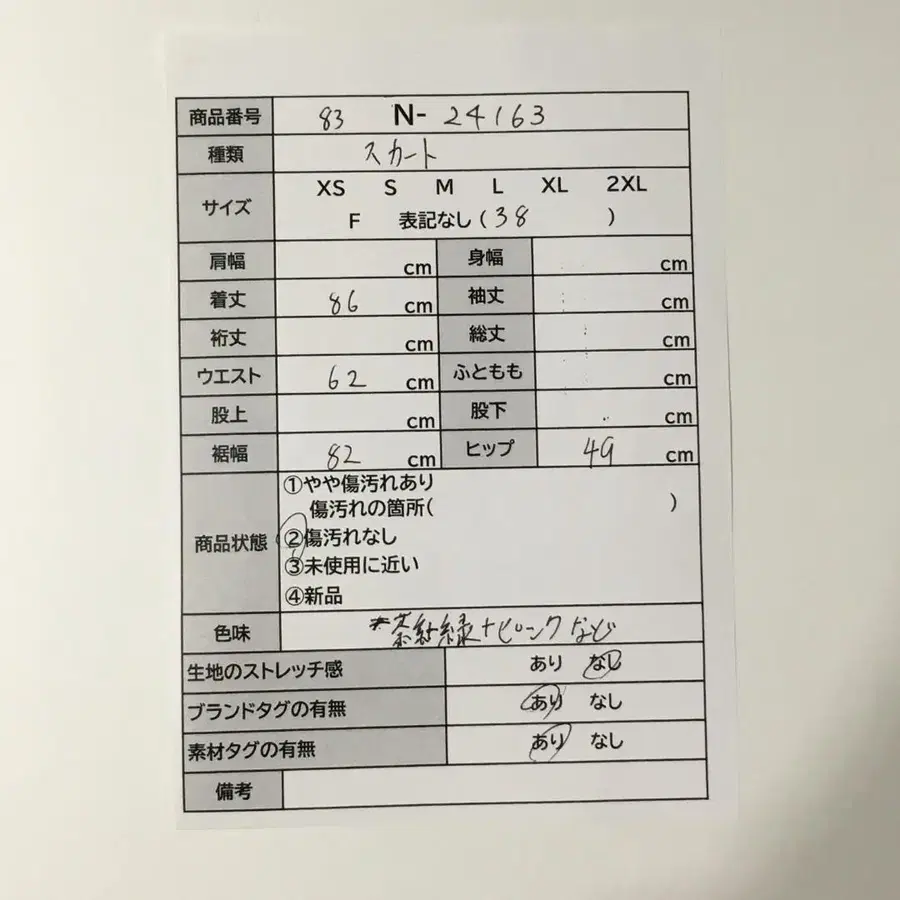 商品番号 83 N- 24163
種類 スカート
サイズ XS S M L XL 2XL
F 表記なし (38 )
肩幅 cm 身幅 cm
着丈 86 cm 袖丈 cm
裄丈 cm 総丈 cm
ウエスト 62 cm ふともも cm
股上 cm 股下 cm
裾幅 82 cm ヒップ 49 cm
商品状態 ①やや傷汚れあり
傷汚れの箇所( )
②傷汚れなし
③未使用に近い
④新品
色味 茶 緑+ピンクなど
生地のストレッチ感 あり なし
ブランドタグの有無 あり なし
素材タグの有無 あり なし
備考